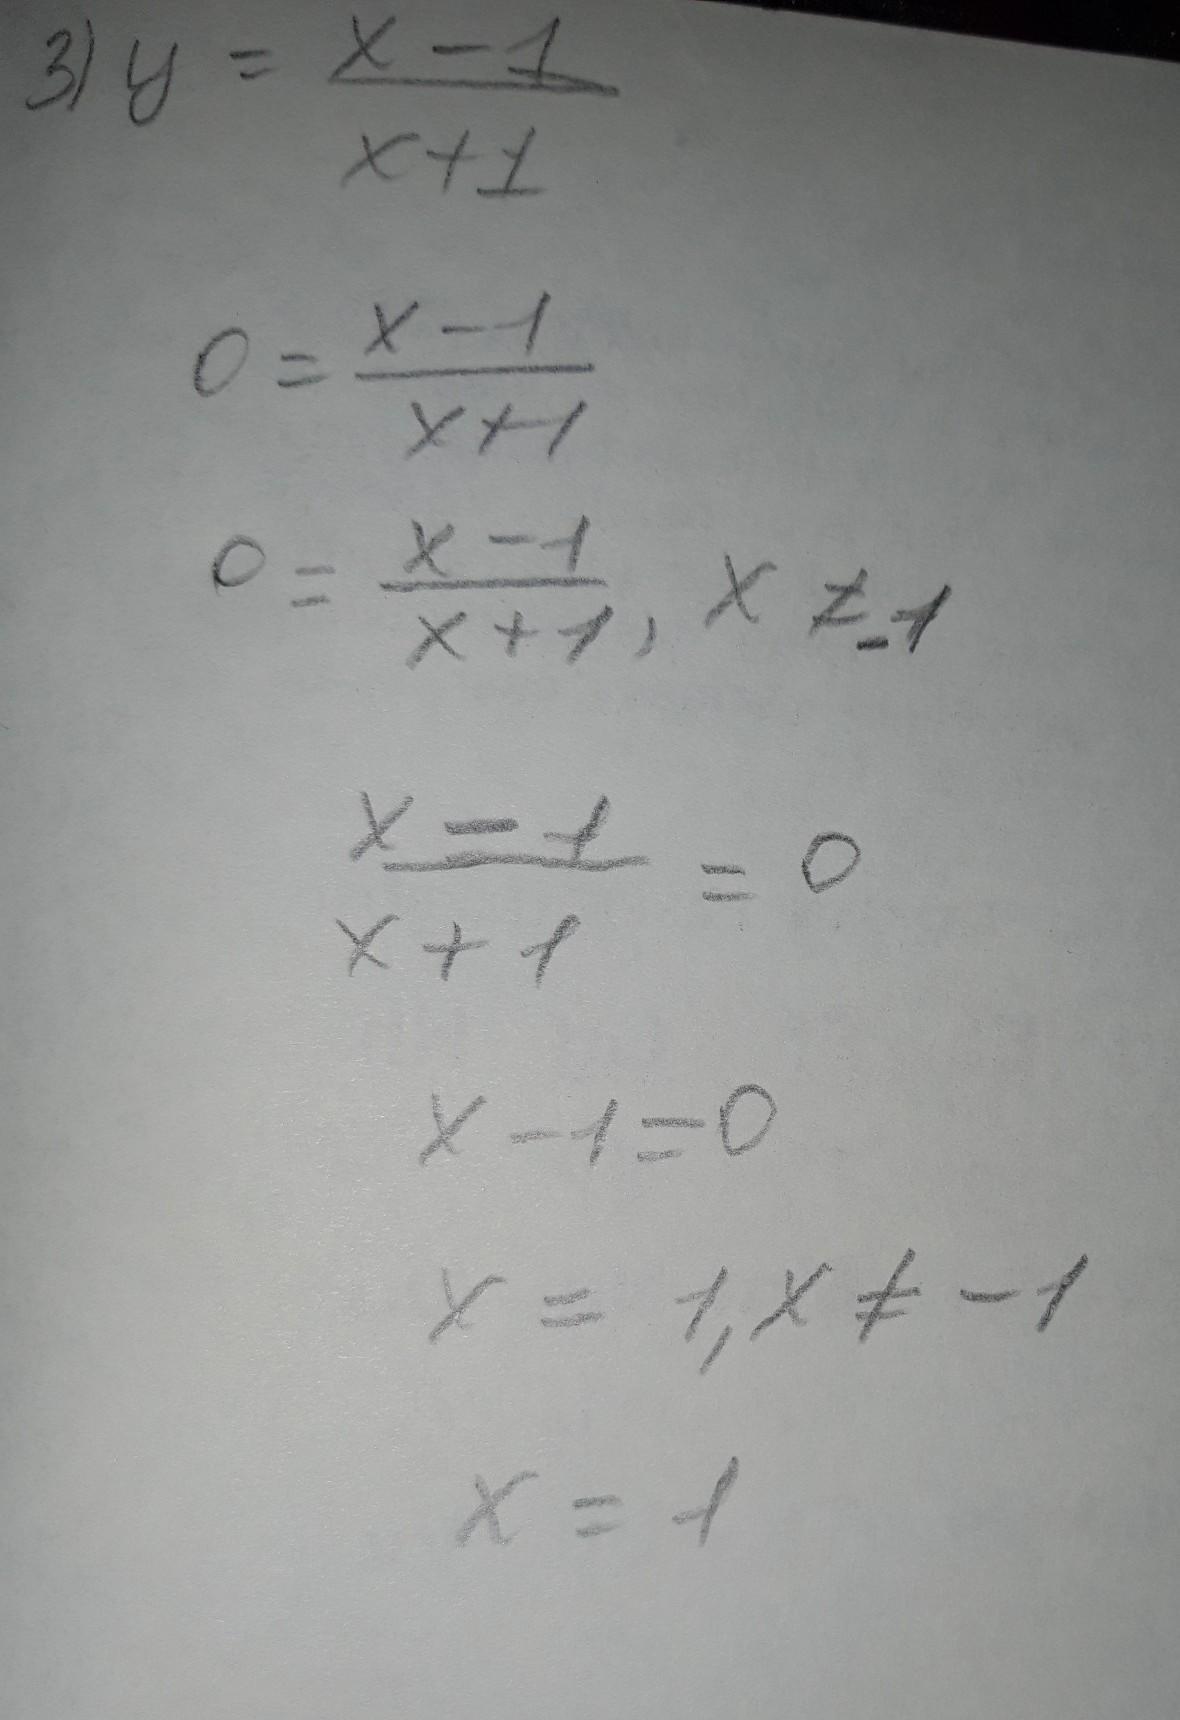 3) y = x - 1
x + 1
0 = x - 1
x + 1
0 = x - 1
x + 1, x ≠ -1
x - 1
x + 1 = 0
x - 1 = 0
x = 1, x ≠ -1
x = 1